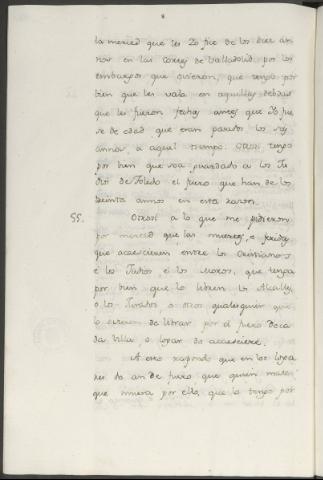 la merced que les Yo fije de los diez an
nos en las Cortes de Valladolid, por los
embargos que ovieron, que tengo por
bien que les vala en aquellas debdas
que les fueron fechas antes que Yo fue
se de edad que eran pasados los seis
annos, a aquel tiempo. Otrosi tengo
por bien que sea guardado a los Ju
dios de Toledo el fuero que han de los
treinta annos en esta razon.
55. Otrosi a lo que me pidieron
por merced que las muertes, e feridas
que acaescieren entre los Cristianos
e los Judios e los Moros, que tenga
por bien que lo libren los Alcalles,
o los Jurados, o otros qualesquier que
lo ovieren de librar por el fuero de ca
da Villa, o logar do acaesciere.
A esto respondo que en los logra
res do an de fuero que quien matare
que muera por ello, que lo tengo por